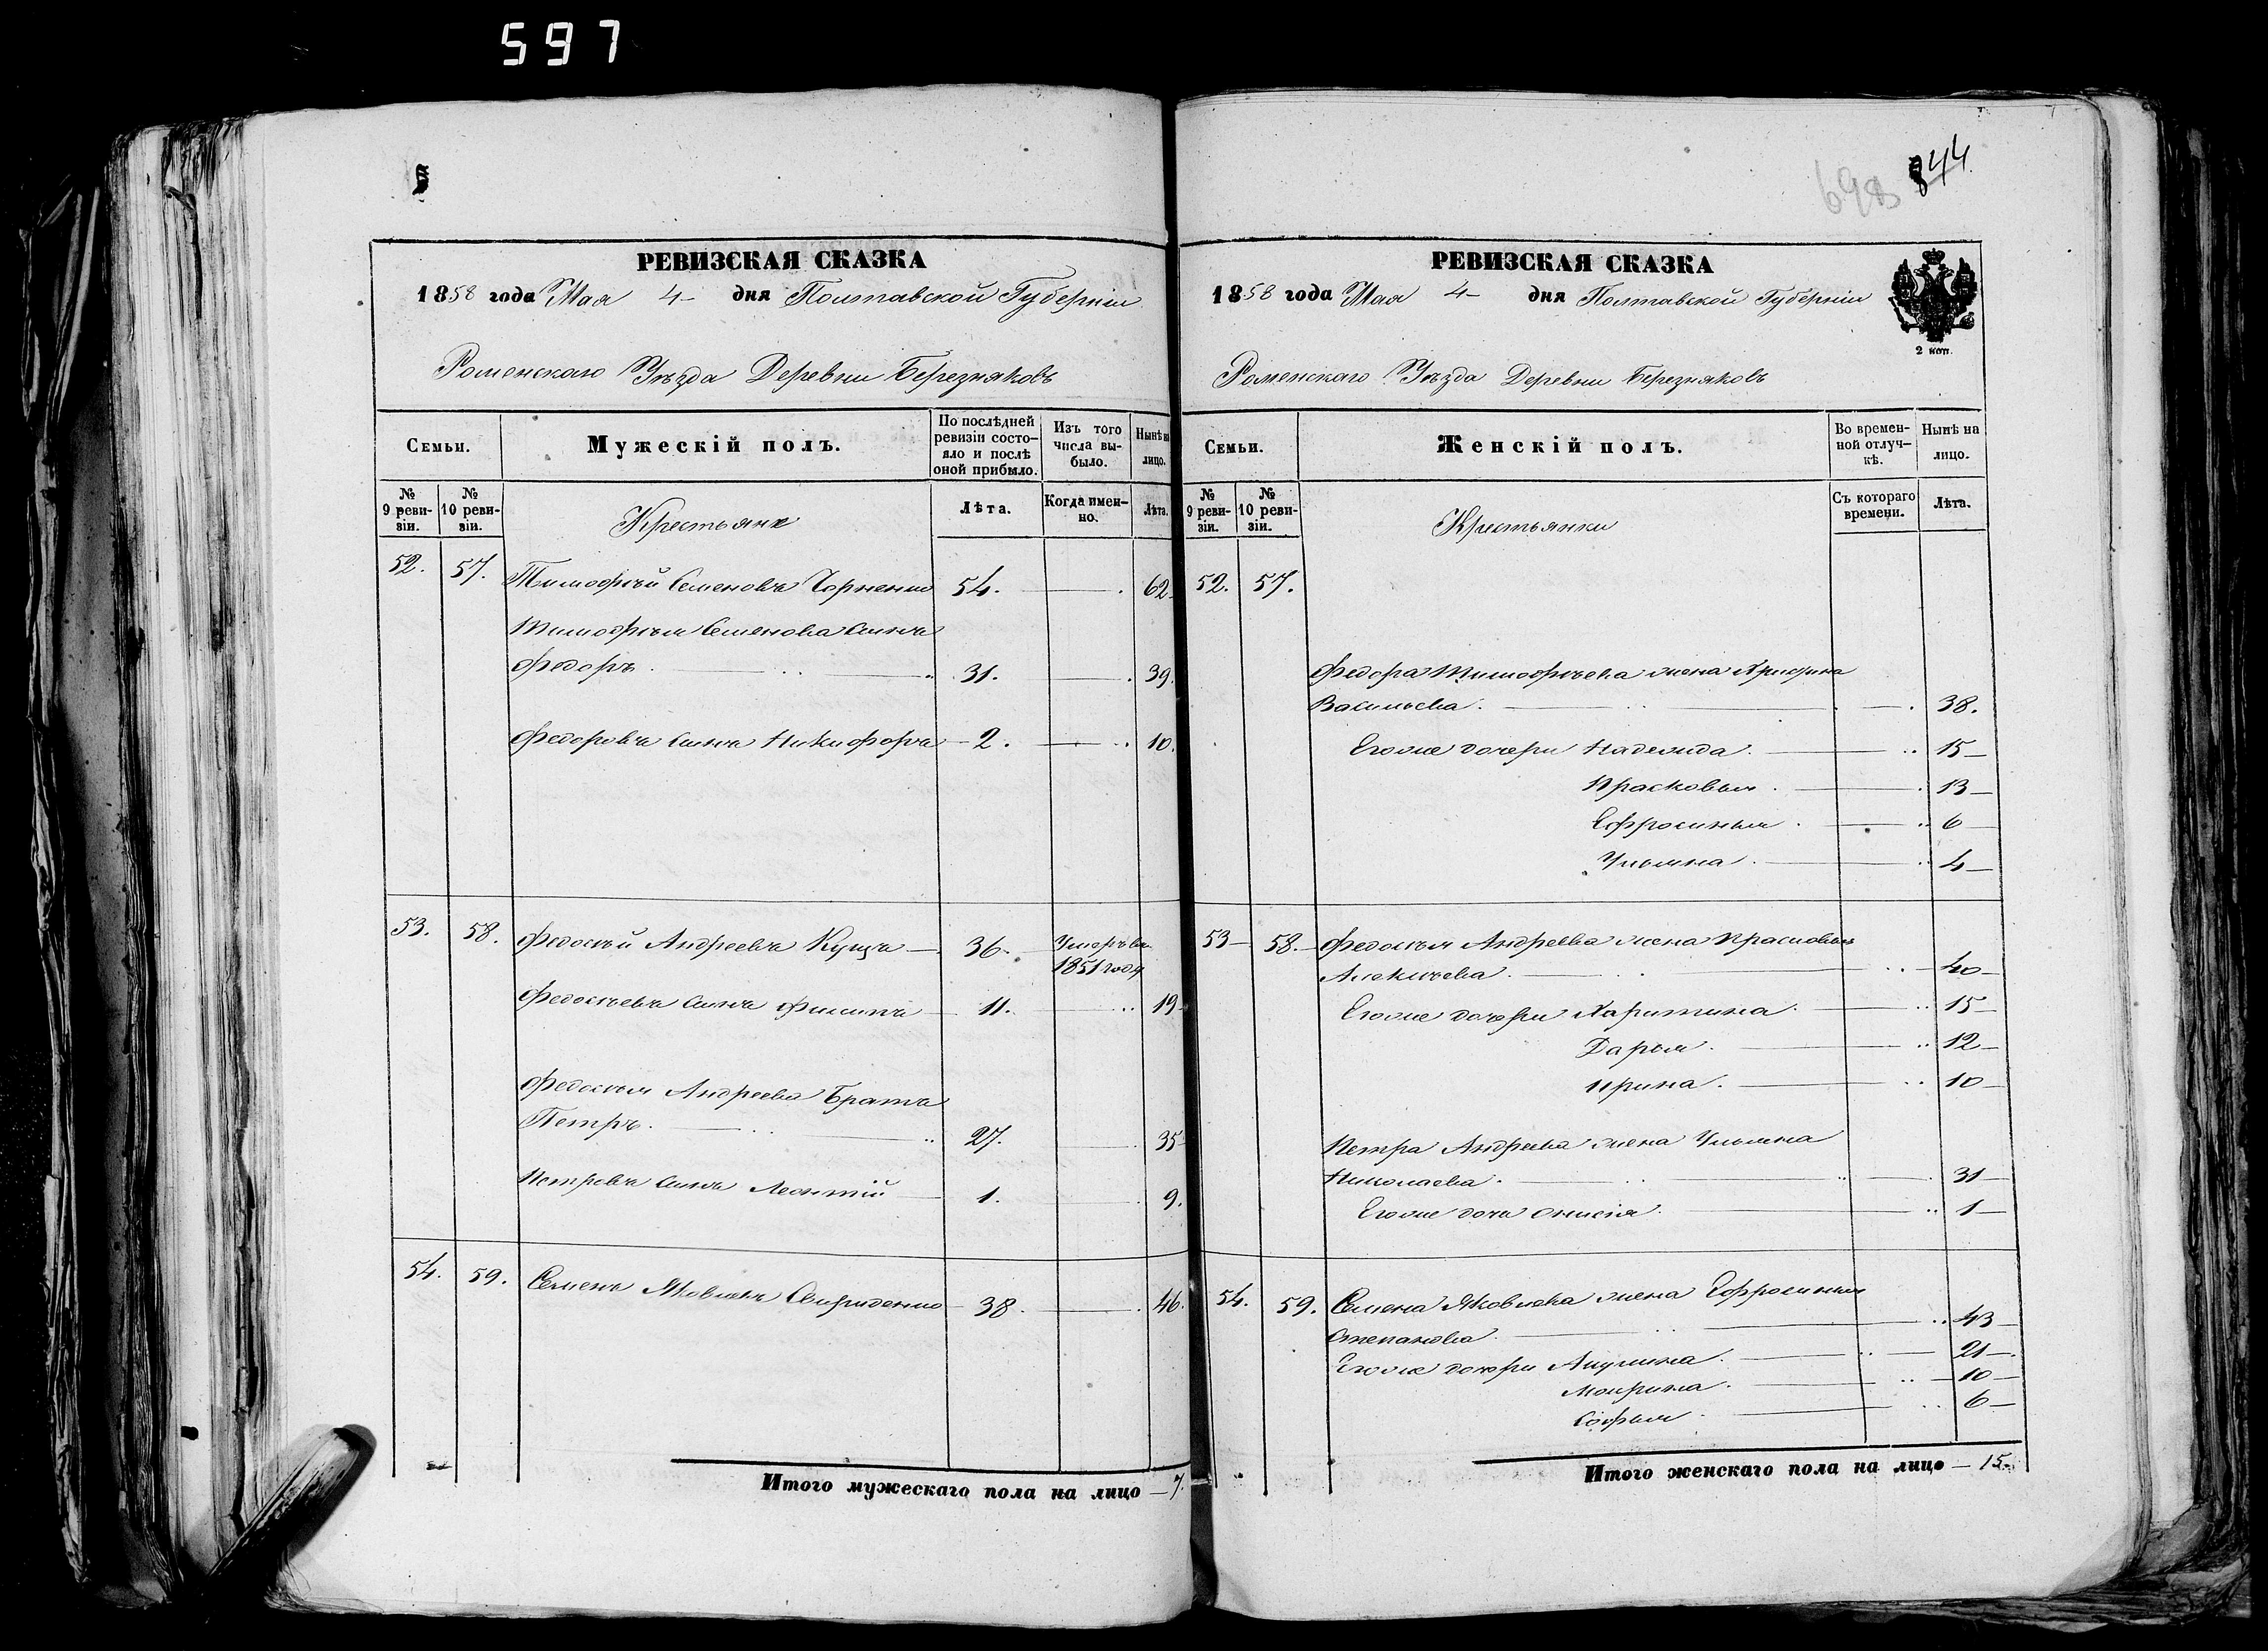 597
844
698
РЕВИЗСКАЯ СКАЗКА
1858 года Мая 4 дня Полтавской Губерніи
Роменскаго Уѣзда Деревни Березняковъ
Семьи.
Мужескій полъ.
По послѣдней ревизіи состояло и послѣ оной прибыло.
Изъ того числа выбыло.
Нынѣ на лицо.
№ 9 ревизіи.
№ 10 ревизіи.
Крестьяне
Лѣта.
Когда именно.
Лѣта.
52. 57. Тимофѣй Семеновъ Чорненко 54. 62.
Тимофѣя Семенова сынъ
Федоръ 31. 39.
Федоровъ сынъ Никифоръ 2. 10.
53. 58. Федосѣй Андреевъ Кущъ 36. Умеръ въ
1851 году
Федосѣевъ сынъ Филипъ 11. 19
Федосѣя Андреева Братъ
Петръ 27. 35
Петровъ сынъ Леонтій 1. 9.
54. 59. Семенъ Яковлевъ Свириденко 38. 46.
Итого мужескаго пола на лицо 7.
РЕВИЗСКАЯ СКАЗКА
1858 года Мая 4 дня Полтавской Губерніи
2 коп.
Роменскаго Уѣзда Деревни Березняковъ
Семьи.
Женскій полъ.
Во временной отлучкѣ.
Нынѣ на лицо.
№ 9 ревизіи.
№ 10 ревизіи.
Крестьянки
Съ котораго времени.
Лѣта.
52. 57.
Федора Тимофѣева жена
Васильева 38.
Егоже дочери Надежда 15
Прасковья 13
Ефросинья 6
Ульяна 4
53 58. Федосѣя Андреева жена Прасковья
Алексѣева 40
Егоже дочери Харитина 15
Дарья 12
Ирина 10
Петра Андреева жена Ульяна
Николаева 31
Егоже дочь Онисія 1
54. 59. Семена Яковлева жена Ефросинья
Степанова 43
Егоже дочери Акулина 21
Мокрина 10
Софья 6
Итого женскаго пола на лицо 15.